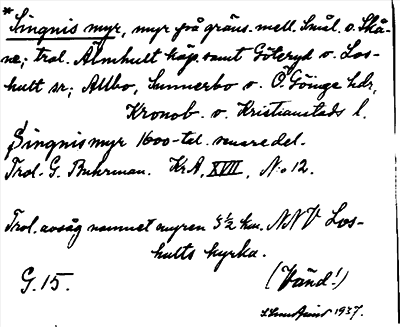 * Singnis myr, myr på gräns. mell. Smål. o. Skå-
ne; trol. Älmhult köp. samt Göteryd o. Los-
hult sr; Allbo, Sunnerbo o. Ö. Göinge hdr,
Kronob. o. Kristianstads l.
Singnis myr 1600-tal. senare del.
Trol. G. Buhrman. Kr.A, XVII, N:o 12.
Trol. avsåg namnet myren 5½ km. NNV Los-
hults kyrka.
G. 15. (Vänd!)
1937.